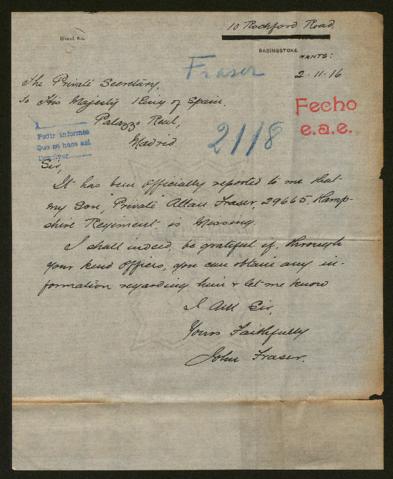 10 Rochford Road
BASINGSTOKE
HANTS:
Fraser
2-11-16
The Private Secretary,
To His Majesty King of Spain.
Fecho
e.a.e.
Palazzo Real,
2118
Pedir informes
Madrid
Que se haga así
Sir,
It has been officially reported to me that
my son, Private Allan Fraser 29665 Hamp-
shire Regiment is missing.
I shall indeed, be grateful if, through
your kind offices, you can obtain any in-
formation regarding him & let me know
I am Sir,
Yours Faithfully
John Fraser.